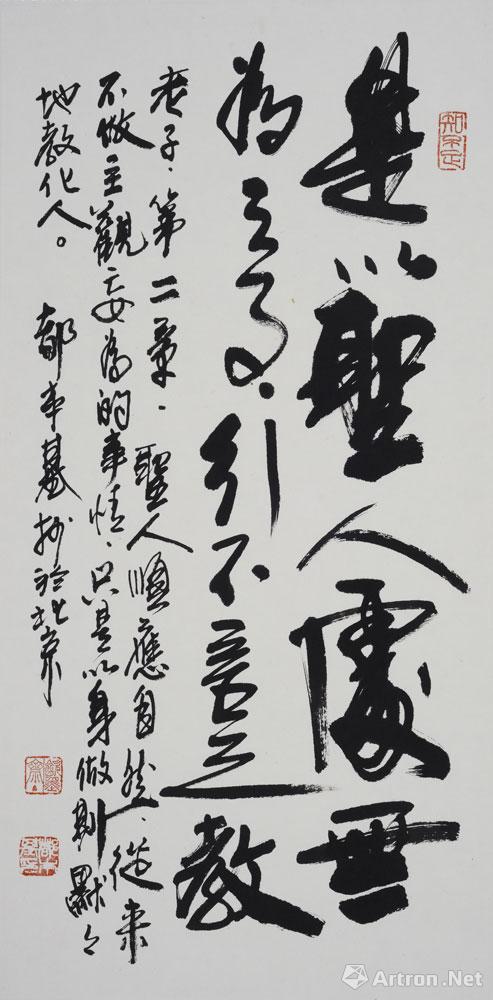 是以聖人處無
為之事、行不言之教
老子、第二章、聖人順應自然、從來
不做主觀妄為的事情、只是以身做則默々
地教化人。 都本基抄於北京
Artron.Net